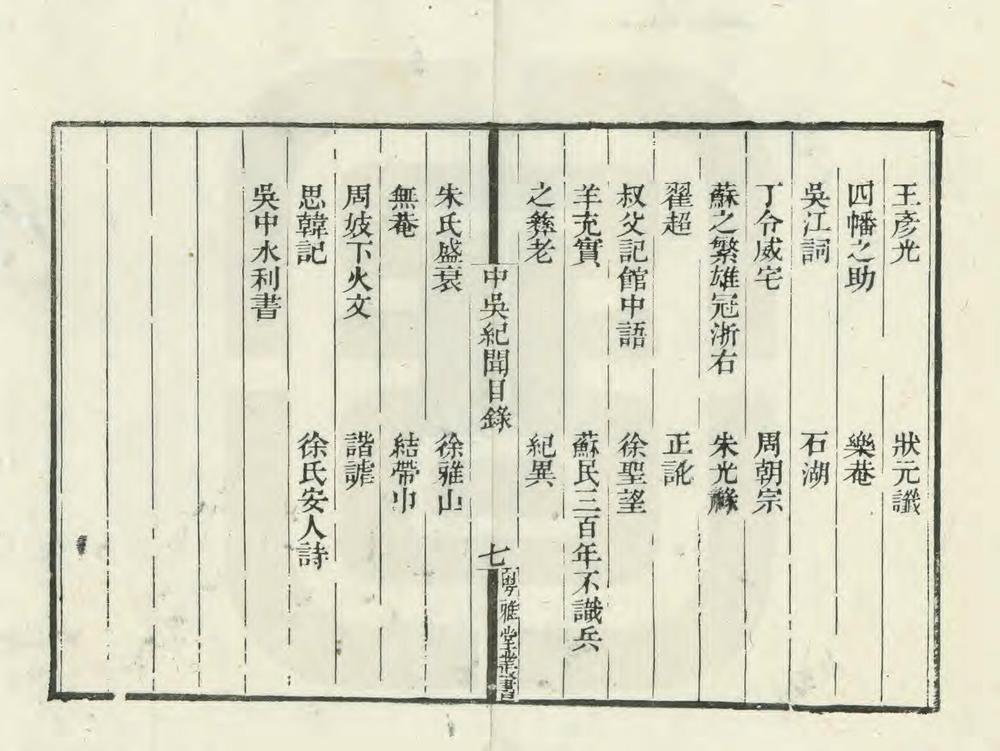 王彥光　狀元讖
四幡之助　樂菴
吳江詞　石湖
丁令威宅　周朝宗
蘇之繁雄冠浙右　朱光祿
翟超　正訛
叔父記館中語　徐聖望
羊充實　蘇民三百年不識兵
之彝老　紀異
中吳紀聞目錄　七　粵雅堂叢書
朱氏盛衰　徐雅山
無菴　結帶巾
周妓下火文　諧謔
思韓記　徐氏安人詩
吳中水利書